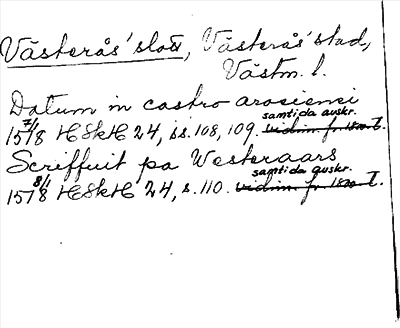 Västerås' slott, Västerås' stad,
Västm. l.
Datum in castro arosiensi
7/1 1518 HSkH 24, ss. 108, 109. samtida avskr. vidim. fr. 1500-t.
Screffuit pa Westeraars
8/1 1518 HSkH 24, s. 110. samtida avskr. vidim. fr. 1500-t.